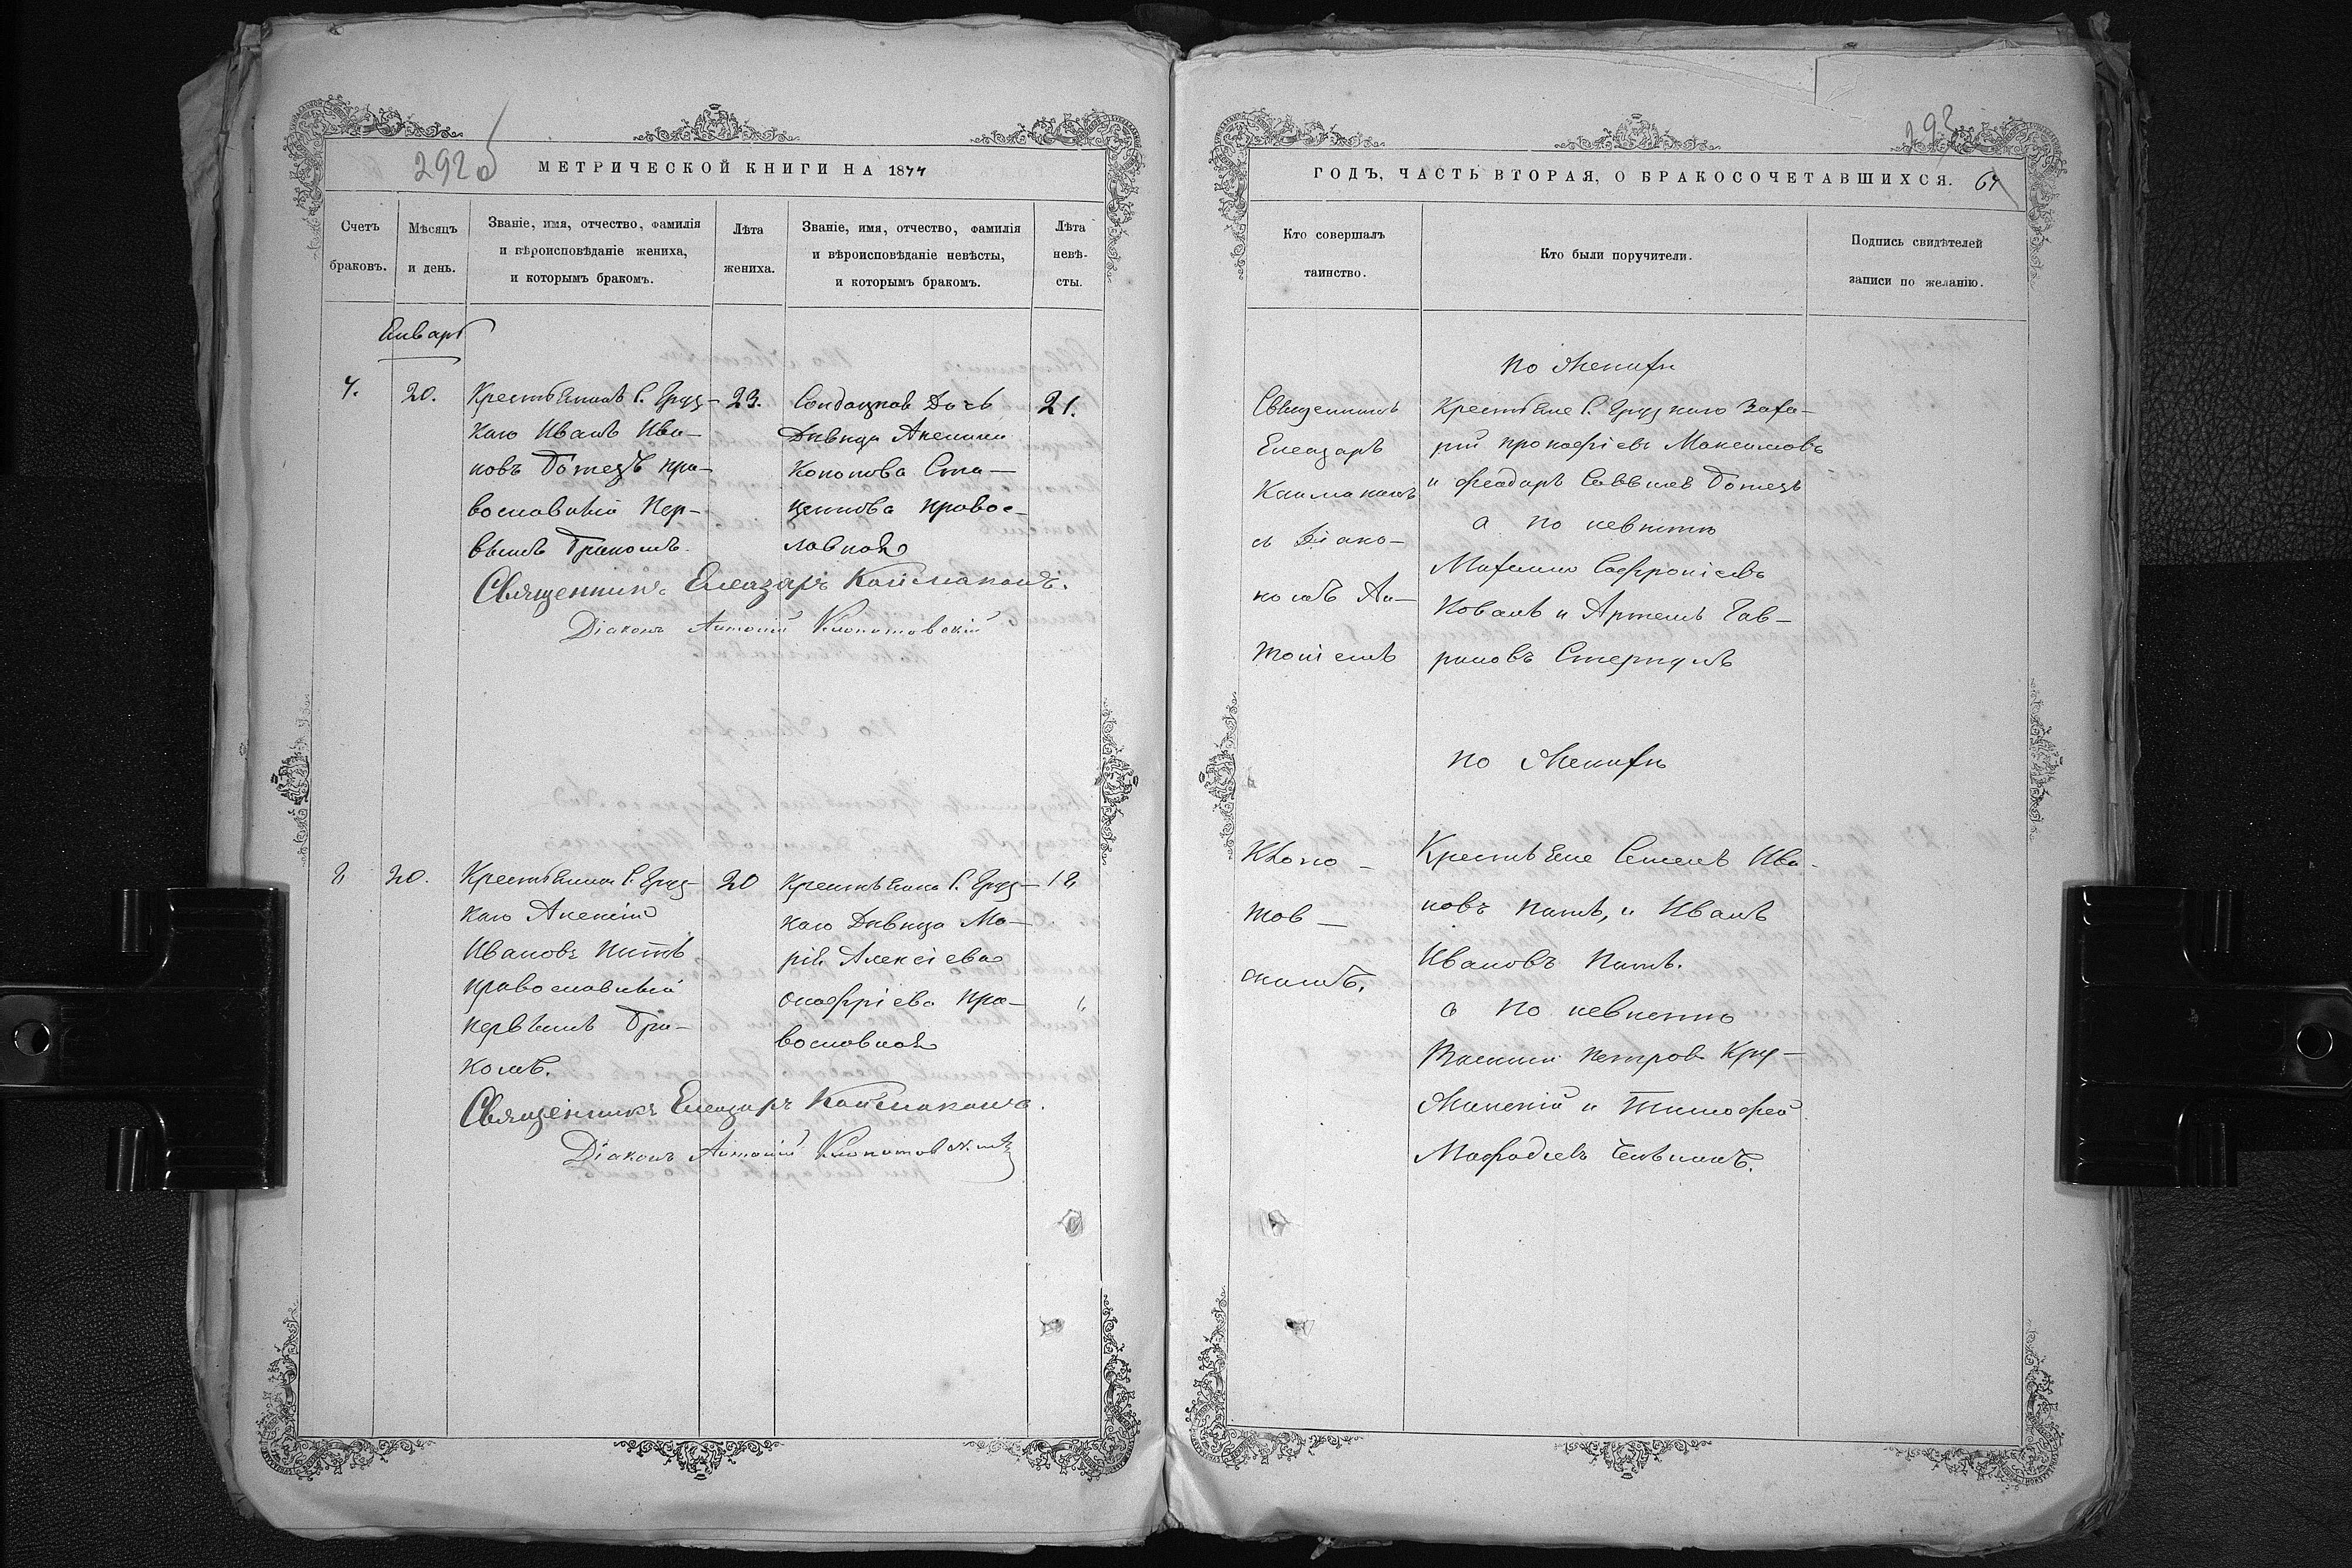 292 об
МЕТРИЧЕСКОЙ КНИГИ НА 1877
Счетъ браковъ.
Мѣсяцъ и день.
Званіе, имя, отчество, фамилія
и вѣроисповѣданіе жениха,
и которымъ бракомъ.
Лѣта жениха.
Званіе, имя, отчество, фамилія
и вѣроисповѣданіе невѣсты,
и которымъ бракомъ.
Лѣта невѣ-
сты.
Енварь
7.
20.
Крестьянинъ С. Груз-
каго Иванъ Ива-
новъ Ботезъ пра-
вославный пер-
вымъ бракомъ.
23.
Солдацкая Дочь
Дѣвица
Кононова Ста-
правос-
лавная
21.
Священникъ Елеазаръ Каймаканъ.
Діаконъ Антоній Клопотовскій
8
20.
Крестьянинъ С. Груз-
каго Алексій
Ивановъ
православный
первымъ бра-
комъ.
20
Крестьянка С. Груз-
каго Дѣвица Ма-
рія Алексіева
Онофріева пра-
вославная
18
Священникъ Елеазаръ Каймаканъ.
Діаконъ Антоній Клопотовскій
293
ГОДЪ, ЧАСТЬ ВТОРАЯ, О БРАКОСОЧЕТАВШИХСЯ.
64
Кто совершалъ
таинство.
Кто были поручители.
Подпись свидѣтелей
записи по желанію.
Священникъ
Елеазаръ
Каймаканъ
съ Діако-
номъ Ан-
тоніемъ
Клопо-
тов-
скимъ.
по женихѣ
Крестьяне С. Грузкаго Заха-
рій Прокофіевъ Максимовъ
и Феодоръ Саввинъ Ботезъ
а по невѣстѣ
Михаилъ Софроніевъ
Коваль и Артемъ Гав-
риловъ
по женихѣ
Крестьяне Семенъ Ива-
новъ и Иванъ
Ивановъ
а по невѣстѣ
Василій Петровъ Кру-
и Тимофей